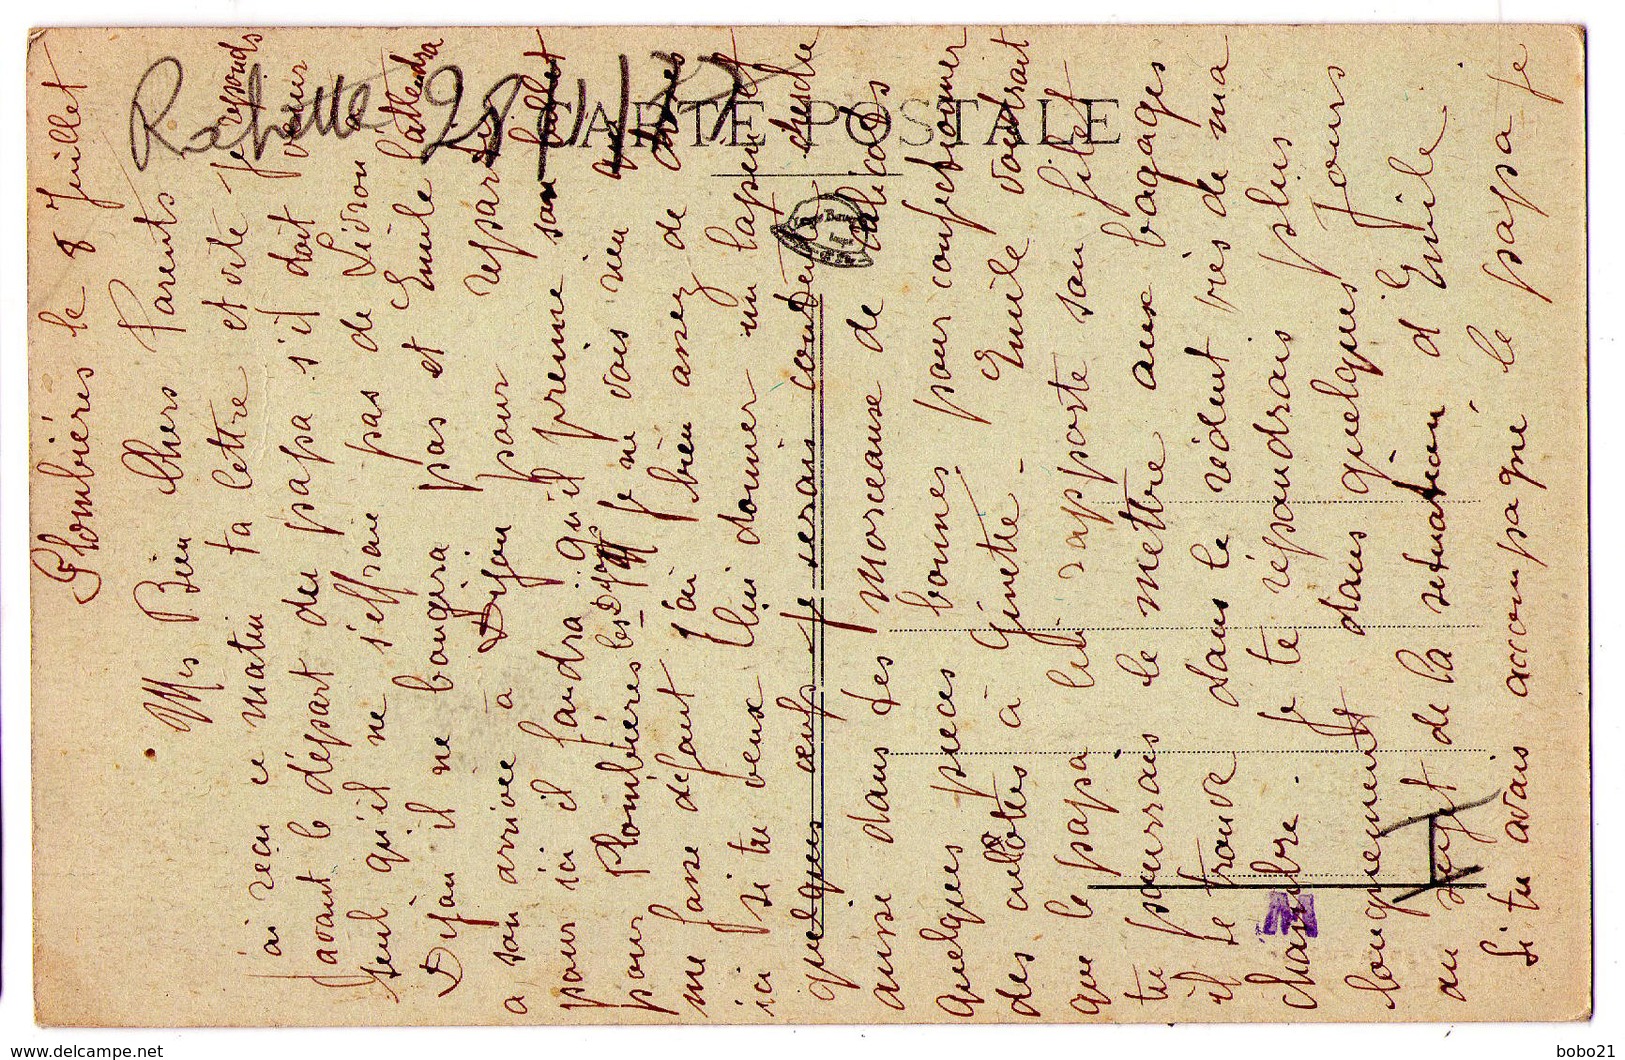 Plombières le 8 Juillet
Mes Bien Chers Parents
J'ai reçu ce matin ta lettre et vite je reponds
avant le départ du papa s'il doit venir
seul qu'il ne s'effraie pas de Livron à
Dijon il ne bougera pas et Emile l'attendra
a son arrivée à Dijon pour repartir
pour ici il faudra qu'il prenne son billet
pour Plombières les Dijon je ne vois rien qui
me fasse défaut j'ai bien assez de draps
ici si tu veux lui donner un lapin et
quelques œufs je serais contente
aussi dans des morceaux de
quelques pieces bonnes pour confectionner
des culottes à Ginette - Emile voudrait
que le papa lui rapporte son filet
tu pourrais le mettre aux bagages
il se trouve dans le réduit près de ma
chambre. Je te répondrais plus
longuement dans quelques jours
au sujet de la situation d'Emile
Si tu avais accompagné le papa je
Rochette 28/1/77
CARTE POSTALE
M
www.delcampe.net
bobo21